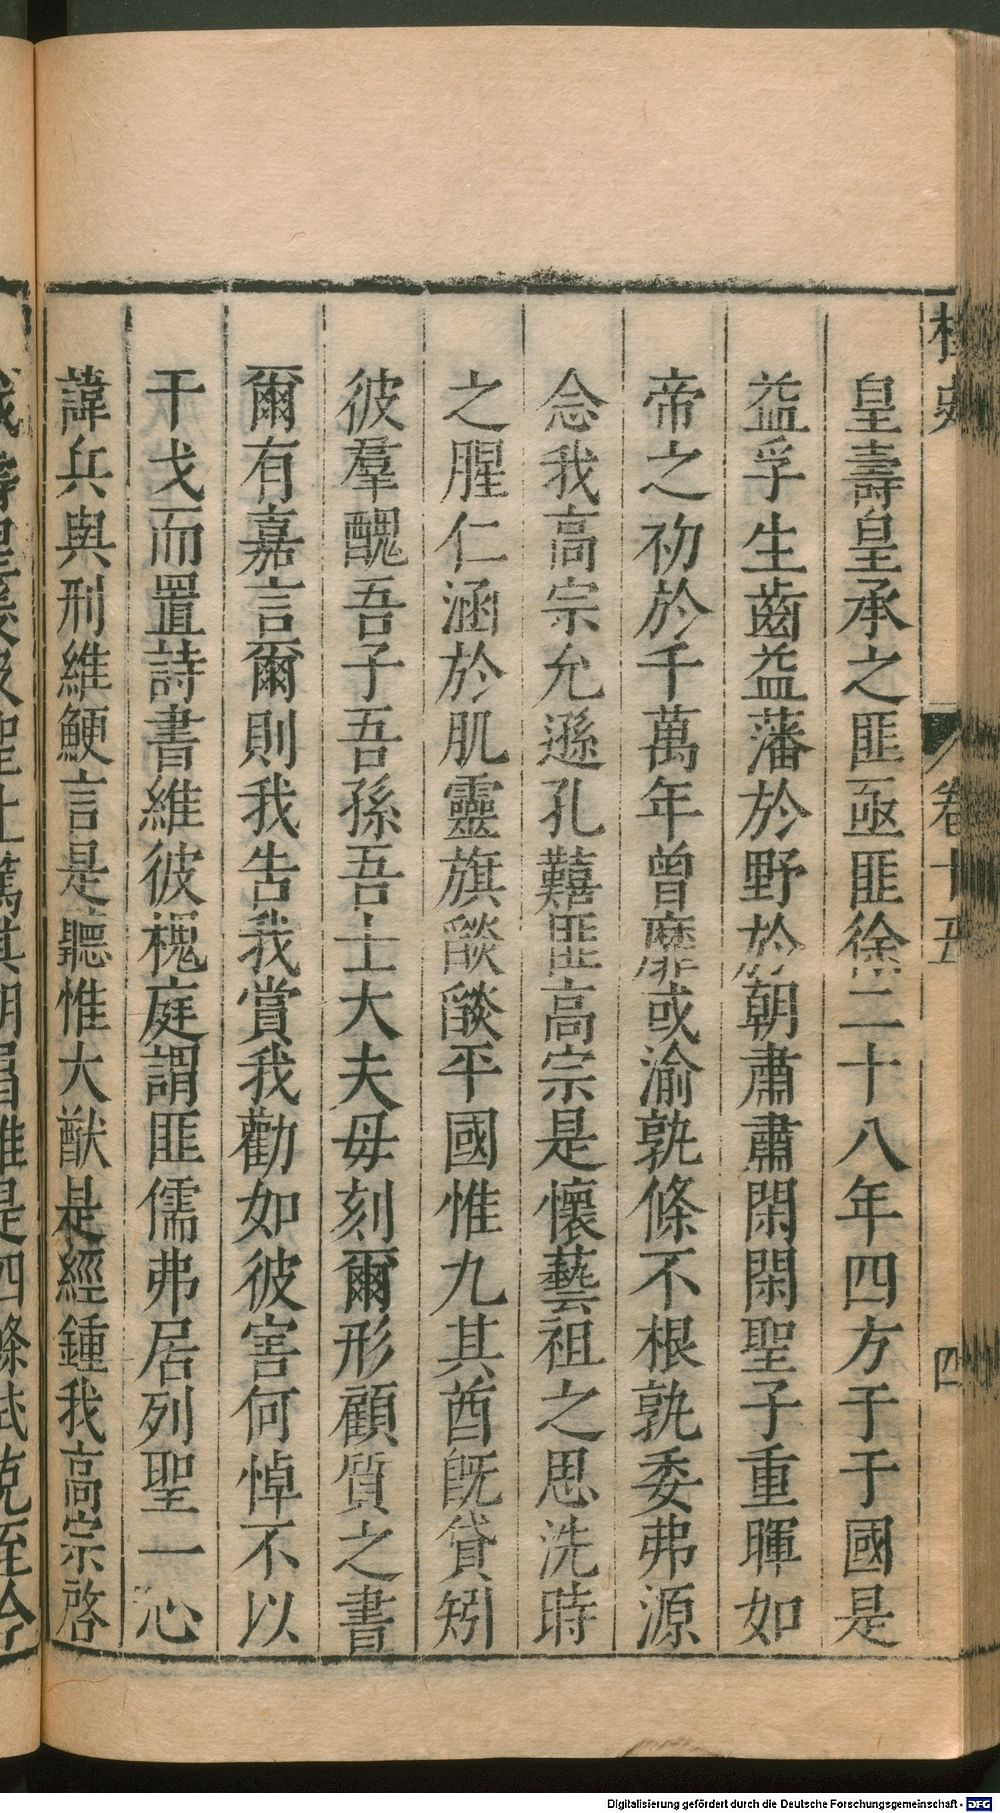 桯史
卷十五
四
皇壽皇承之匪亟匪徐二十八年四方于于國是
益孚生齒益藩於野於朝肅肅閑閑聖子重暉如
帝之初於千萬年曾靡或渝孰條不根孰委弗源
念我高宗允遜孔囏匪高宗是懷藝祖之思洗時
之腥仁涵於肌靈旗燄燄平國惟九其酋旣貸矧
彼羣醜吾子吾孫吾士大夫毋刻爾形顧質之書
爾有嘉言爾則我告我賞我勸如彼害何悼不以
干戈而置詩書維彼槐庭謂匪儒弗居列聖一心
諱兵與刑維鯁言是聽惟大猷是經鍾我高宗啓